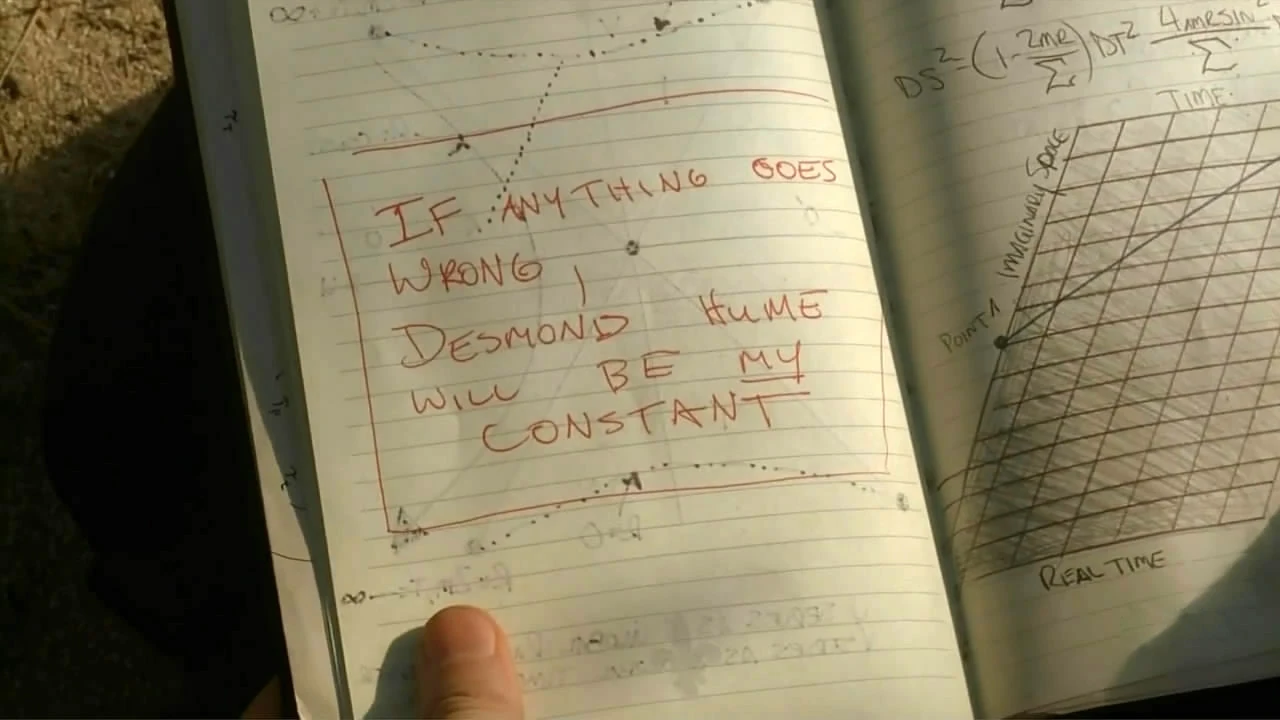 IF ANYTHING GOES
WRONG,
DESMOND HUME
WILL BE MY
CONSTANT
DS²=(1-2MR/Σ)DT² 4MRSIN²/Σ
TIME
IMAGINARY SPACE
POINT A
REAL TIME
∞
∞